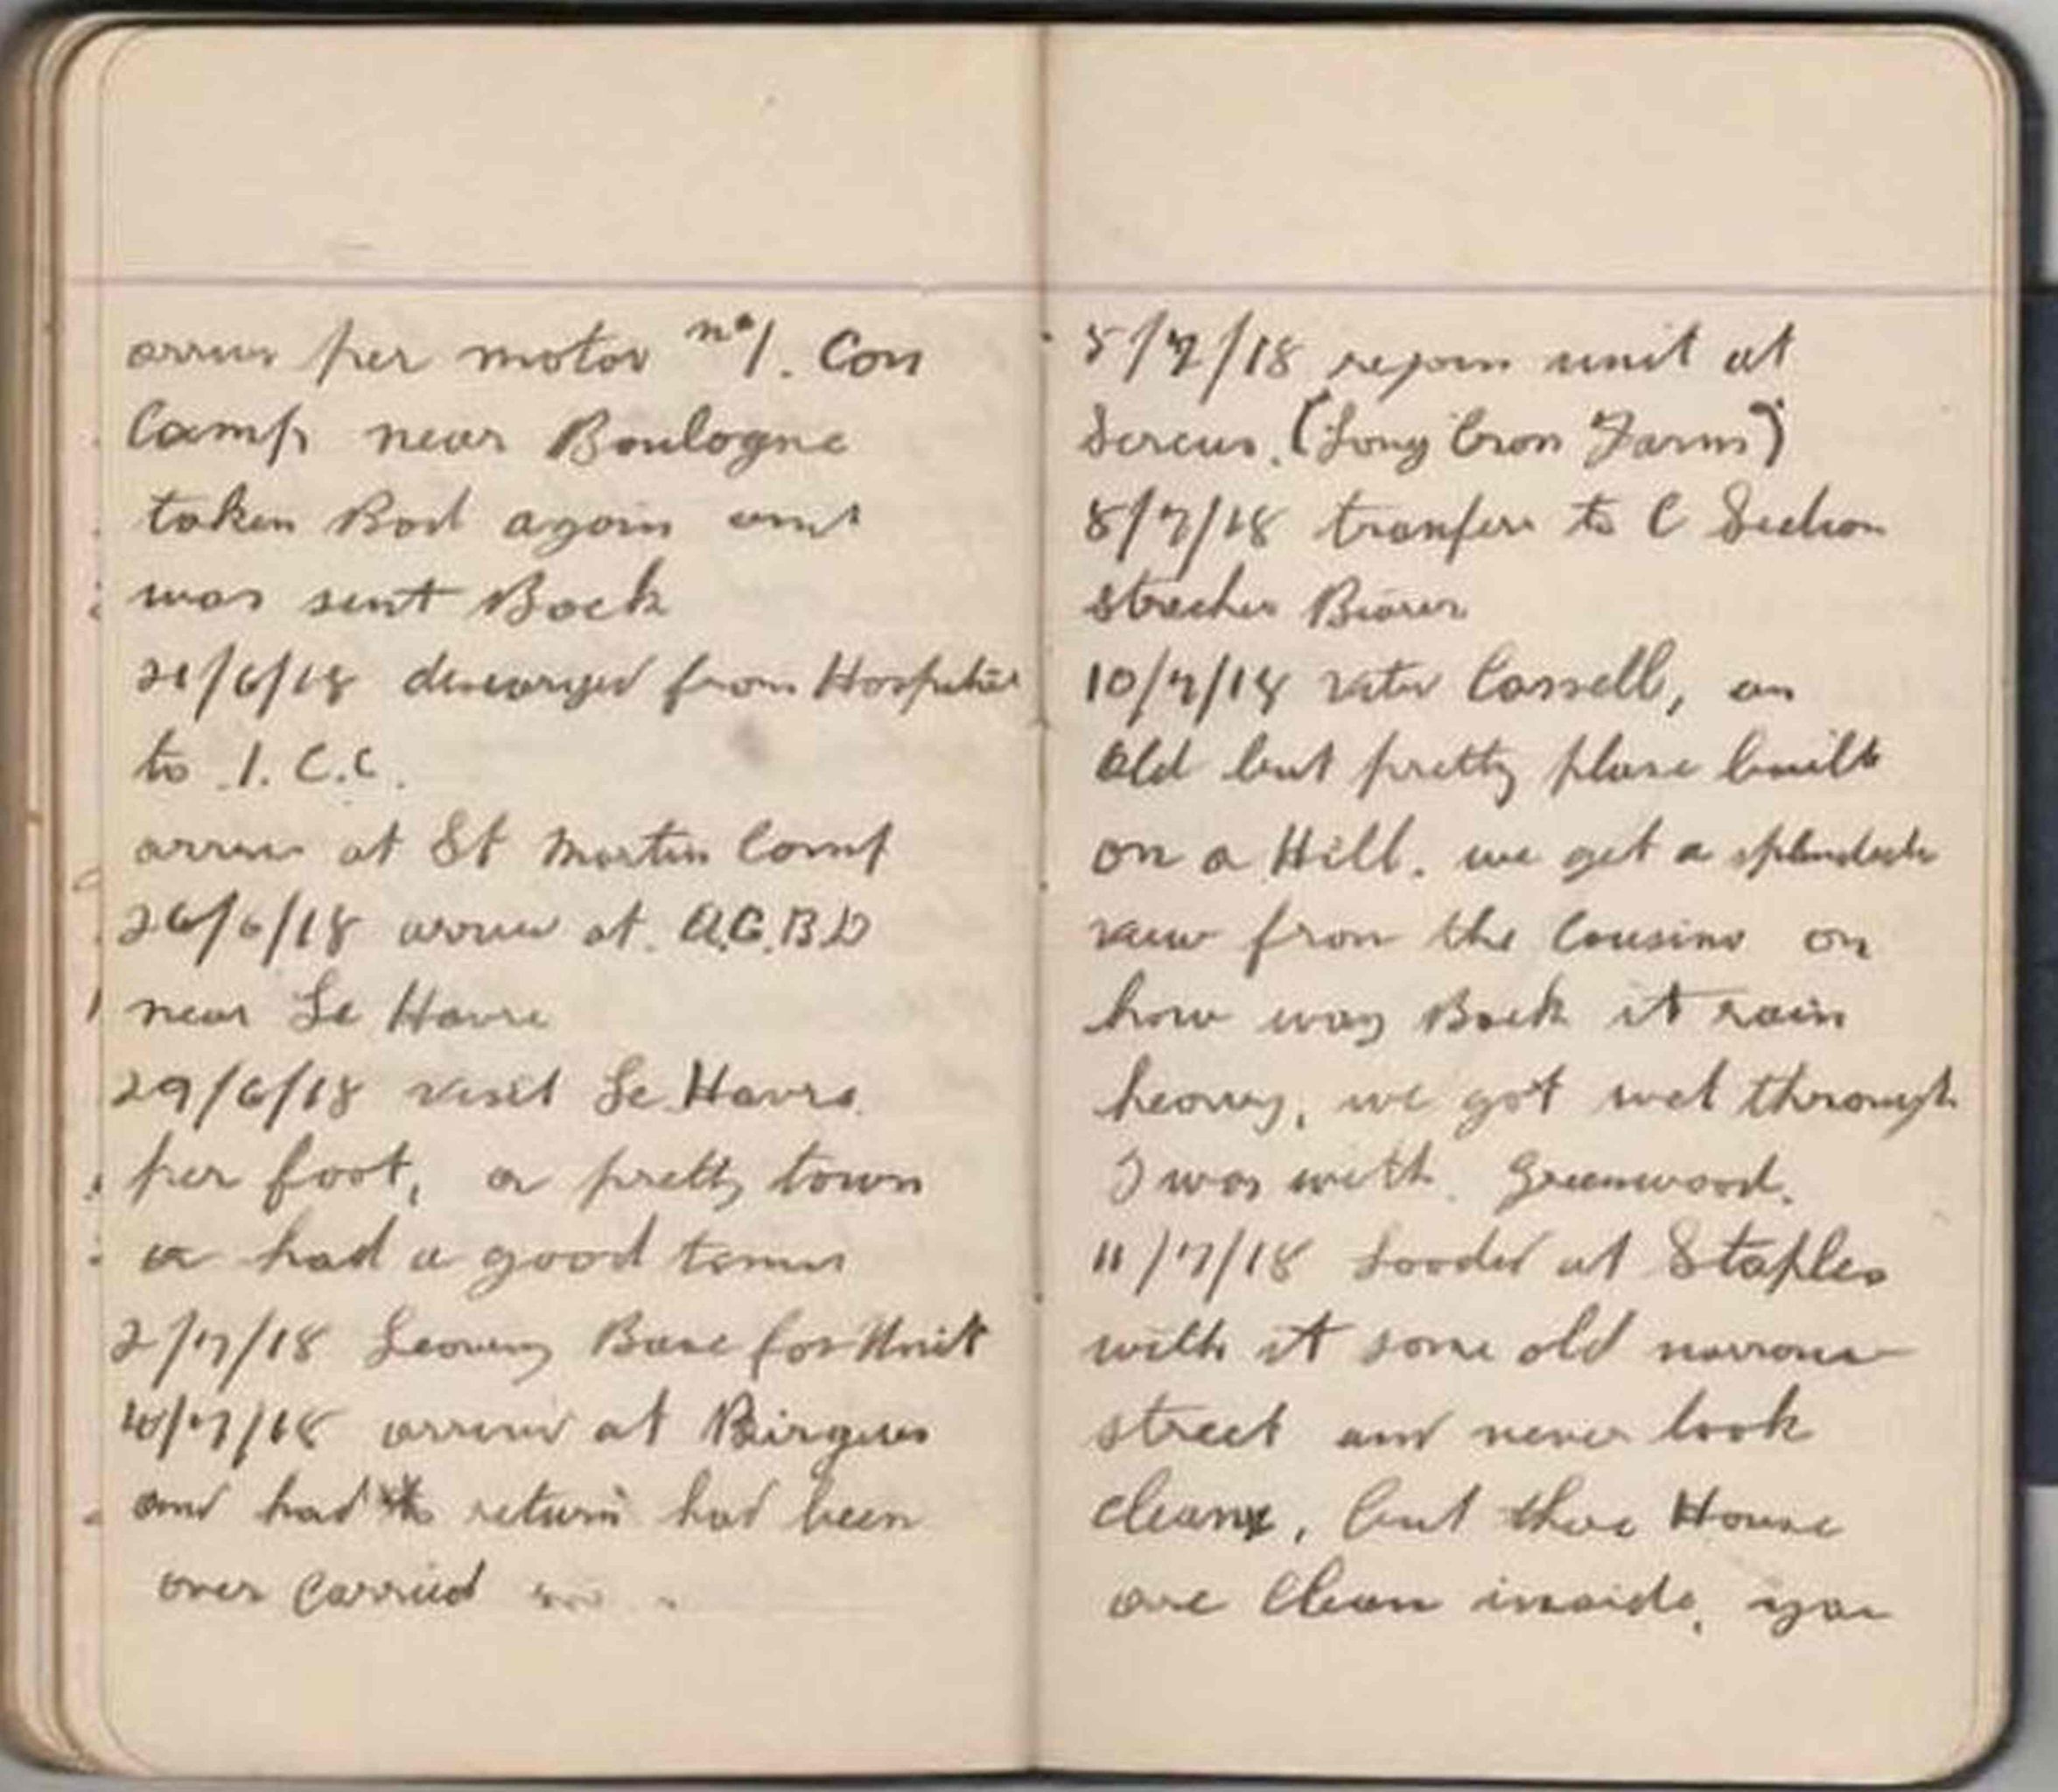 arrive per motor no 1. Con
Camp near Boulogne
taken Bad again and
was sent Back
21/6/18 discarged from Hospital
to 1. C.C.
arrive at St Martin Camp
26/6/18 arrive at A.G.B.D
near Le Havre
29/6/18 visit Le Havre
per foot, a pretty town
a had a good time
2/7/18 Leaving Base for Unit
4/7/18 arrive at Bergues
and had to return had been
over carried
5/7/18 rejoin unit at
Sercus. (Long Cron Farm)
8/7/18 tranfer to C Section
strecher Bearer
10/7/18 Cassell, an
old but pretty place built
on a Hill. we get a splendid
view from the Cousino on
how way Back it rain
heavy, we got wet through
I was with Greenwood.
11/7/18 at Staples
with it some old narrow
street and never look
clean, but there House
are clean inside, you